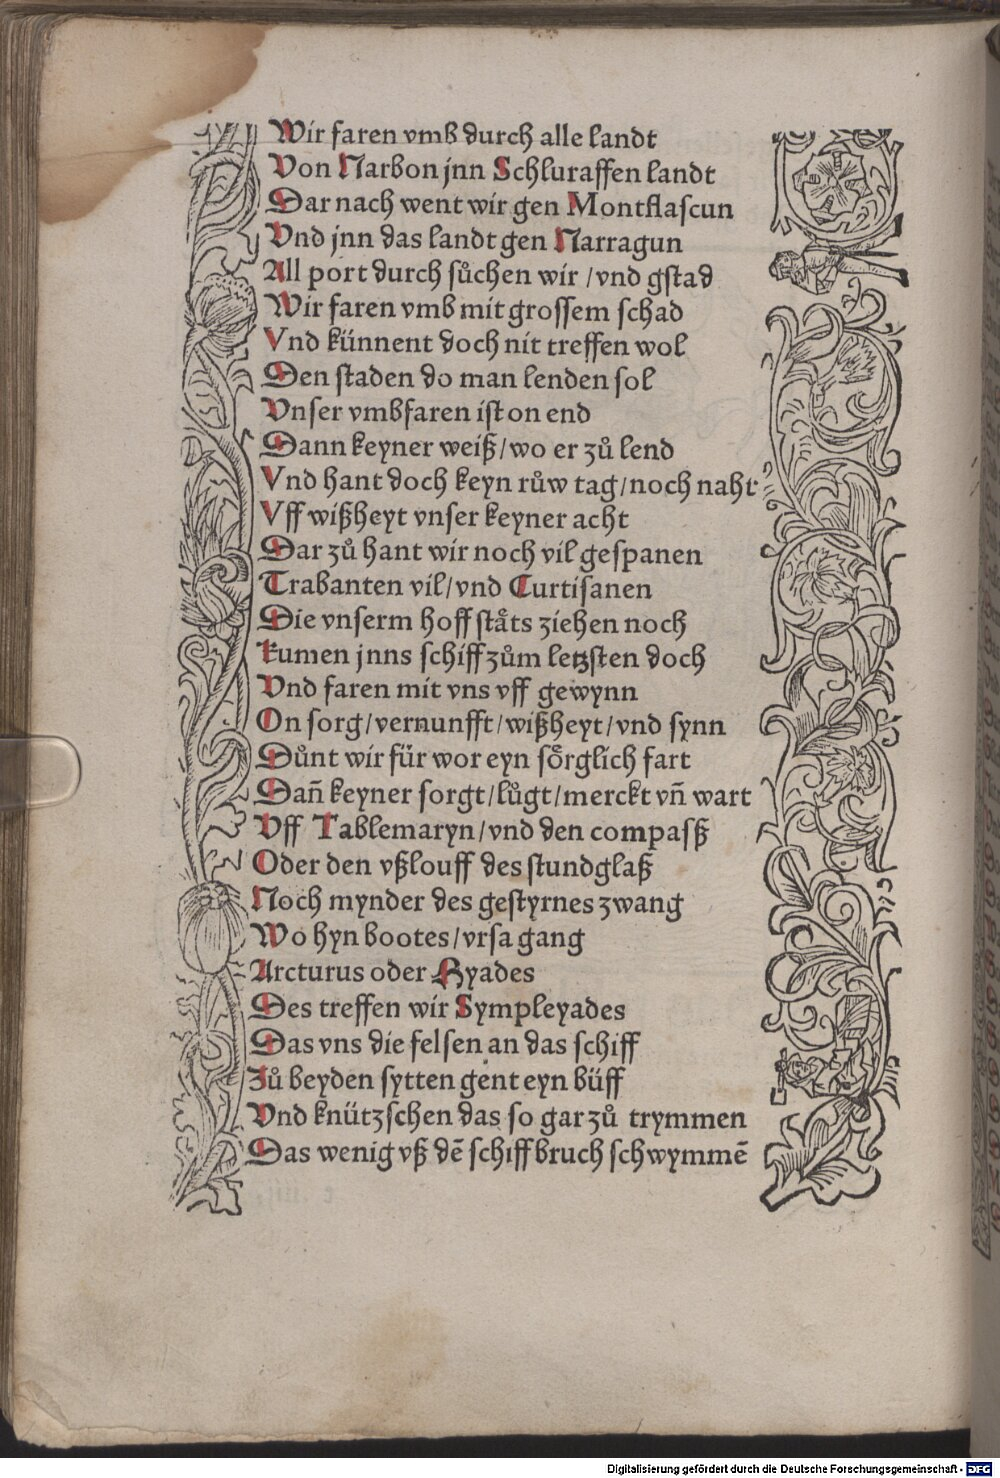 Wir faren vmb durch alle landt
Von Narbon jnn Schluraffen landt
Dar nach went wir gen Montflascun
Vnd jnn das landt gen Narragun
All port durch sůchen wir / vnd gstad
Wir faren vmb mit grossem schad
Vnd künnent doch nit treffen wol
Den staden do man lenden sol
Vnser vmbfaren ist on end
Dann keyner weiß / wo er zů lend
Vnd hant doch keyn růw tag / noch naht
Vff wißheyt vnser keyner acht
Dar zů hant wir noch vil gespanen
Trabanten vil / vnd Curtisanen
Die vnserm hoff stǎts ziehen noch
kumen jnns schiff zům letzsten doch
Vnd faren mit vns vff gewynn
On sorg / vernunfft / wißheyt / vnd synn
Důnt wir für wor eyn sörglich fart
Dañ keyner sorgt / lůgt / merckt vñ wart
Vff Tablemaryn / vnd den compasß
Oder den vßlouff des stundglaß
Noch mynder des gestyrnes zwang
Wo hyn bootes / vrsa gang
Arcturus oder Hyades
Des treffen wir Sympleyades
Das vns die felsen an das schiff
Zů beyden sytten gent eyn büff
Vnd knützschen das so gar zů trymmen
Das wenig vß dē schiffbruch schwymmē
Digitalisierung gefördert durch die Deutsche Forschungsgemeinschaft - DFG